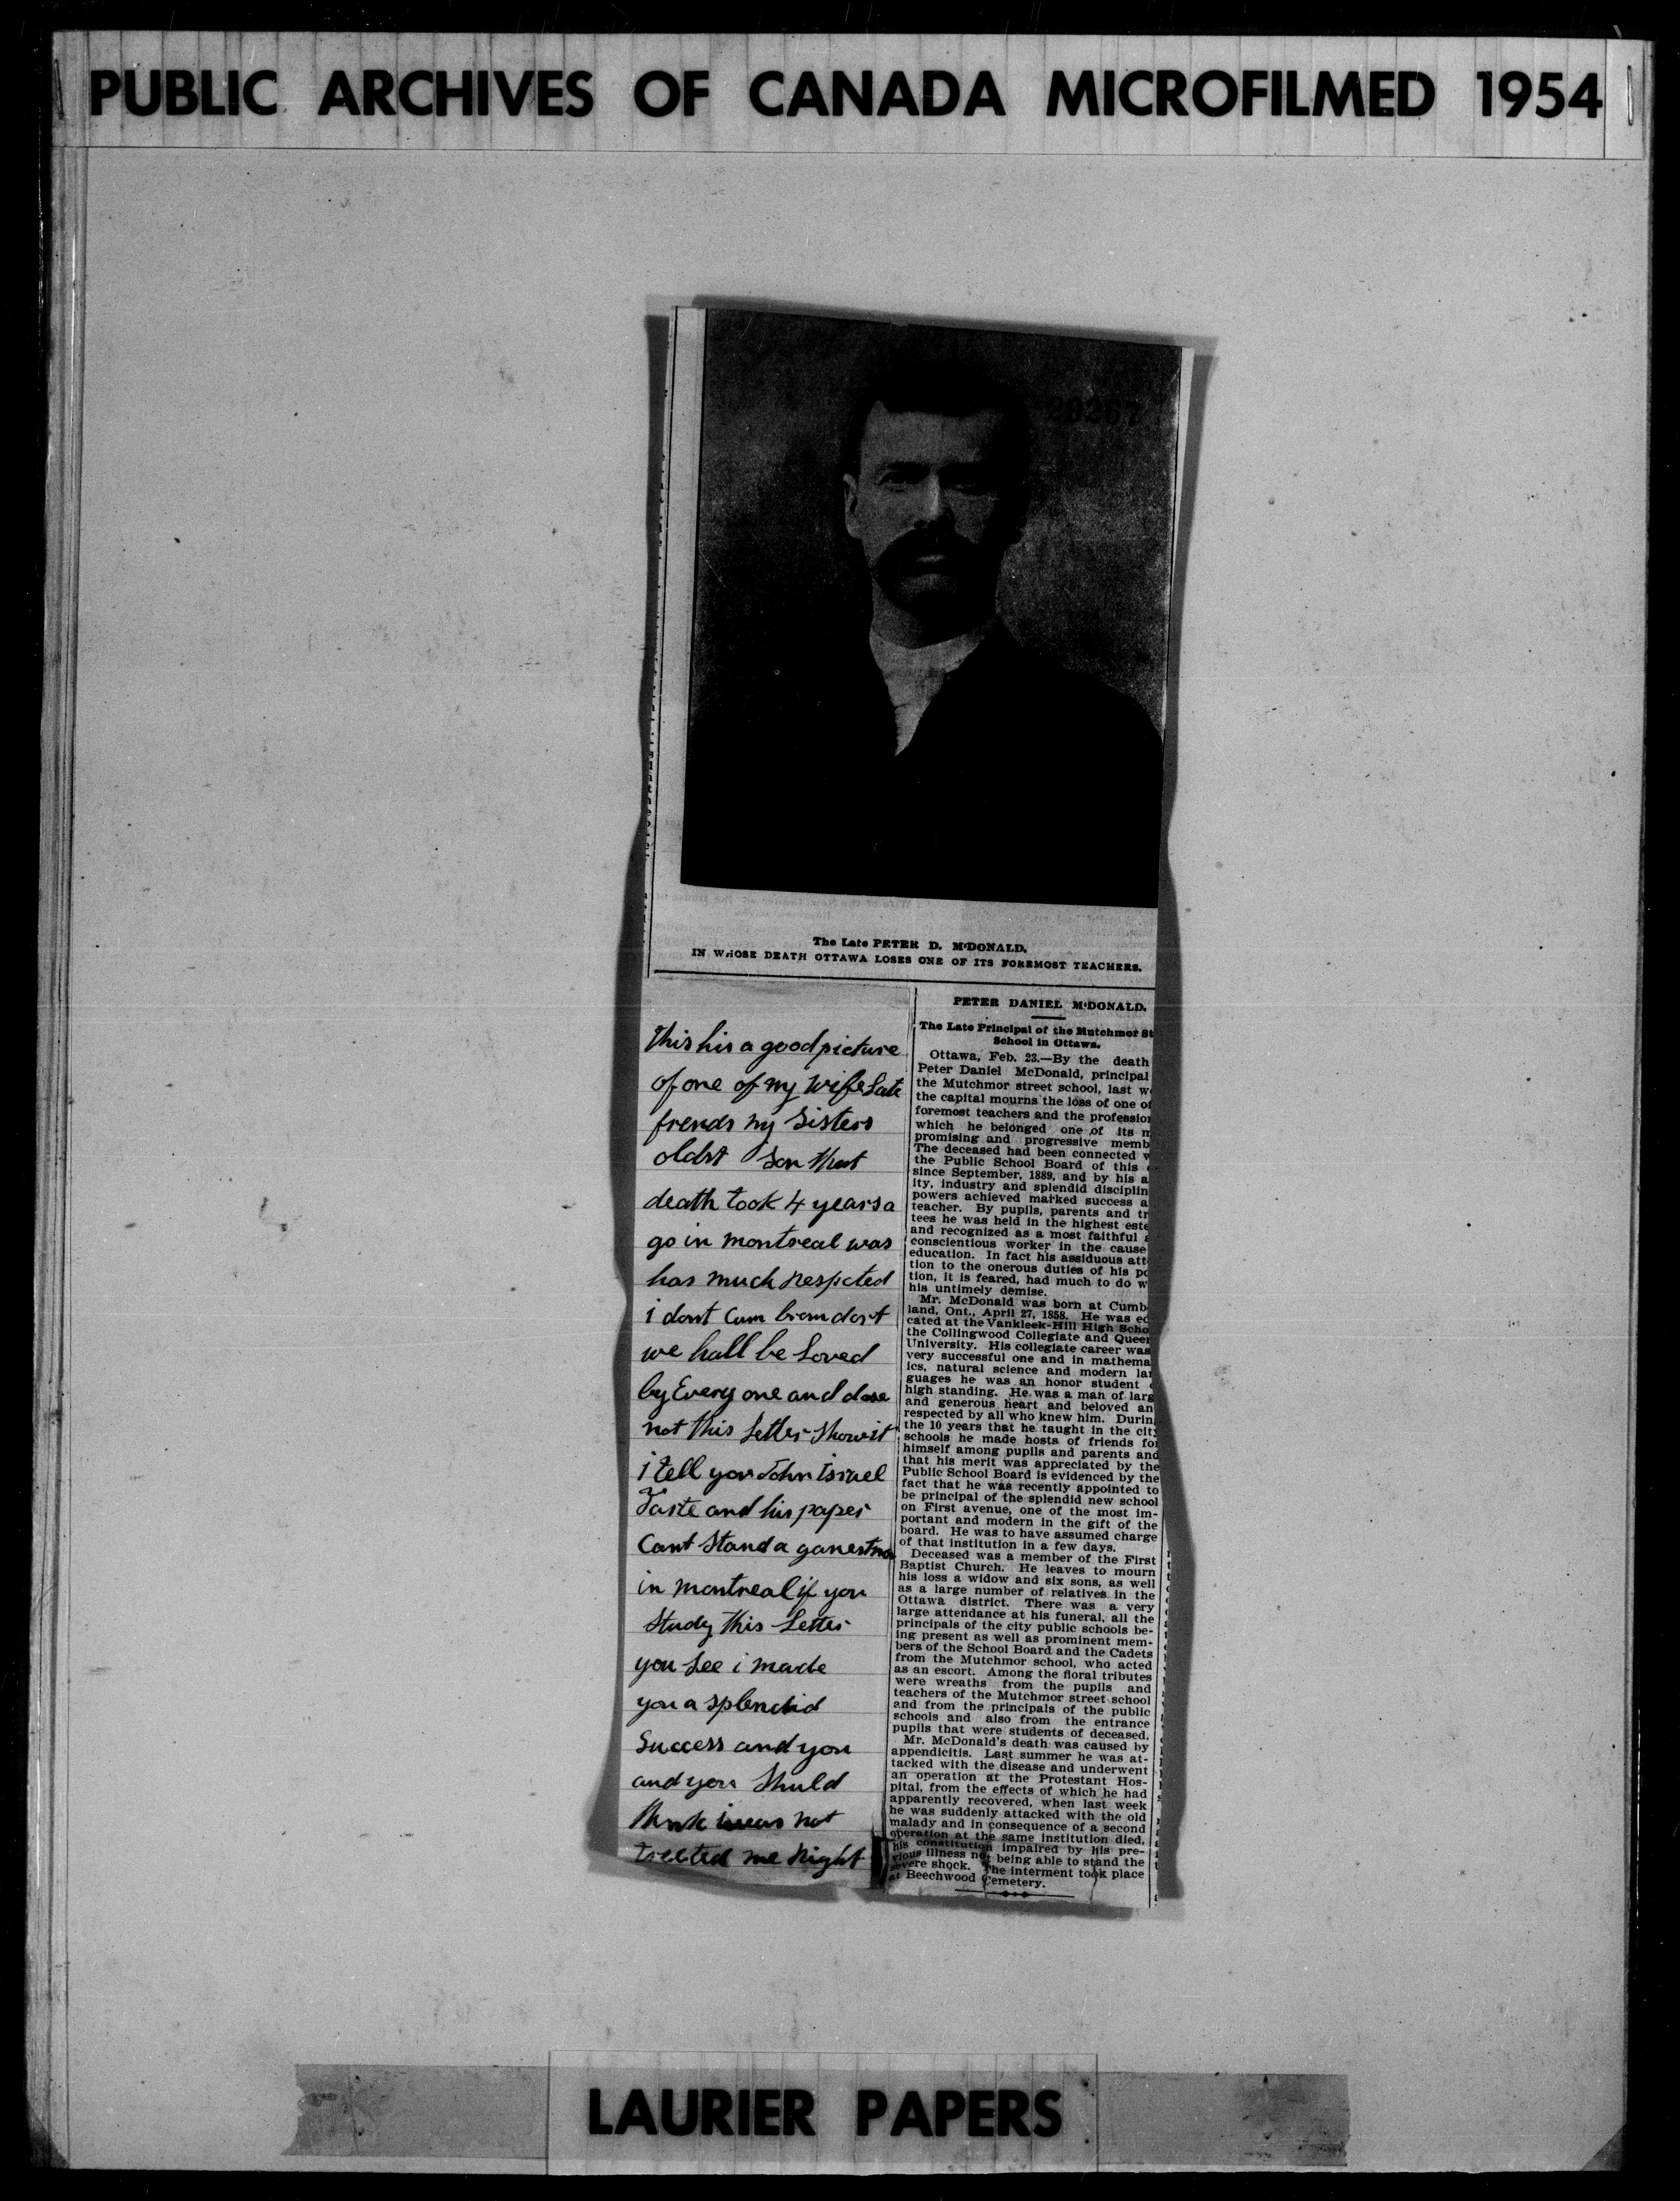 PUBLIC ARCHIVES OF CANADA MICROFILMED 1954
29267
The Late PETER D. McDONALD,
IN WHOSE DEATH OTTAWA LOSES ONE OF ITS FOREMOST TEACHERS.
this his a good picture
of one of my wife Late
frends my Sisters
oldst Son that
death took 4 years a
go in montreal was
has much respected
i dont Cum
we hall be Loved
by Every one and dose
not this Letter Show it
i tell you John Israel
Tarte and his paper
Cant Stand a
in montreal if you
Study this Letter
you See i made
you a splendid
Success and you
and you Shuld
think not
treeted me Right
PETER DANIEL McDONALD.
The Late Principal of the Mutchmor St
School in Ottawa.
Ottawa, Feb. 23.—By the death
Peter Daniel McDonald, principal
the Mutchmor street school, last w
the capital mourns the loss of one of
foremost teachers and the profession
which he belonged one of its m
promising and progressive memb
The deceased had been connected w
the Public School Board of this
since September, 1889, and by his a
ity, industry and splendid disciplin
powers achieved marked success a
teacher. By pupils, parents and tr
tees he was held in the highest este
and recognized as a most faithful a
conscientious worker in the cause
education. In fact his assiduous att
tion to the onerous duties of his po
tion, it is feared, had much to do w
his untimely demise.
Mr. McDonald was born at Cumb
land, Ont., April 27, 1858. He was ed
cated at the Vankleek-Hill High Scho
the Collingwood Collegiate and Queen
University. His collegiate career was
very successful one and in mathema
ics, natural science and modern lan
guages he was an honor student
high standing. He was a man of larg
and generous heart and beloved an
respected by all who knew him. Durin
the 10 years that he taught in the city
schools he made hosts of friends for
himself among pupils and parents and
that his merit was appreciated by the
Public School Board is evidenced by the
fact that he was recently appointed to
be principal of the splendid new school
on First avenue, one of the most im-
portant and modern in the gift of the
board. He was to have assumed charge
of that institution in a few days.
Deceased was a member of the First
Baptist Church. He leaves to mourn
his loss a widow and six sons, as well
as a large number of relatives in the
Ottawa district. There was a very
large attendance at his funeral, all the
principals of the city public schools be-
ing present as well as prominent mem-
bers of the School Board and the Cadets
from the Mutchmor school, who acted
as an escort. Among the floral tributes
were wreaths from the pupils and
teachers of the Mutchmor street school
and from the principals of the public
schools and also from the entrance
pupils that were students of deceased.
Mr. McDonald's death was caused by
appendicitis. Last summer he was at-
tacked with the disease and underwent
an operation at the Protestant Hos-
pital, from the effects of which he had
apparently recovered, when last week
he was suddenly attacked with the old
malady and in consequence of a second
operation at the same institution died,
his constitution impaired by his pre-
vious illness not being able to stand the
severe shock. The interment took place
at Beechwood Cemetery.
LAURIER PAPERS